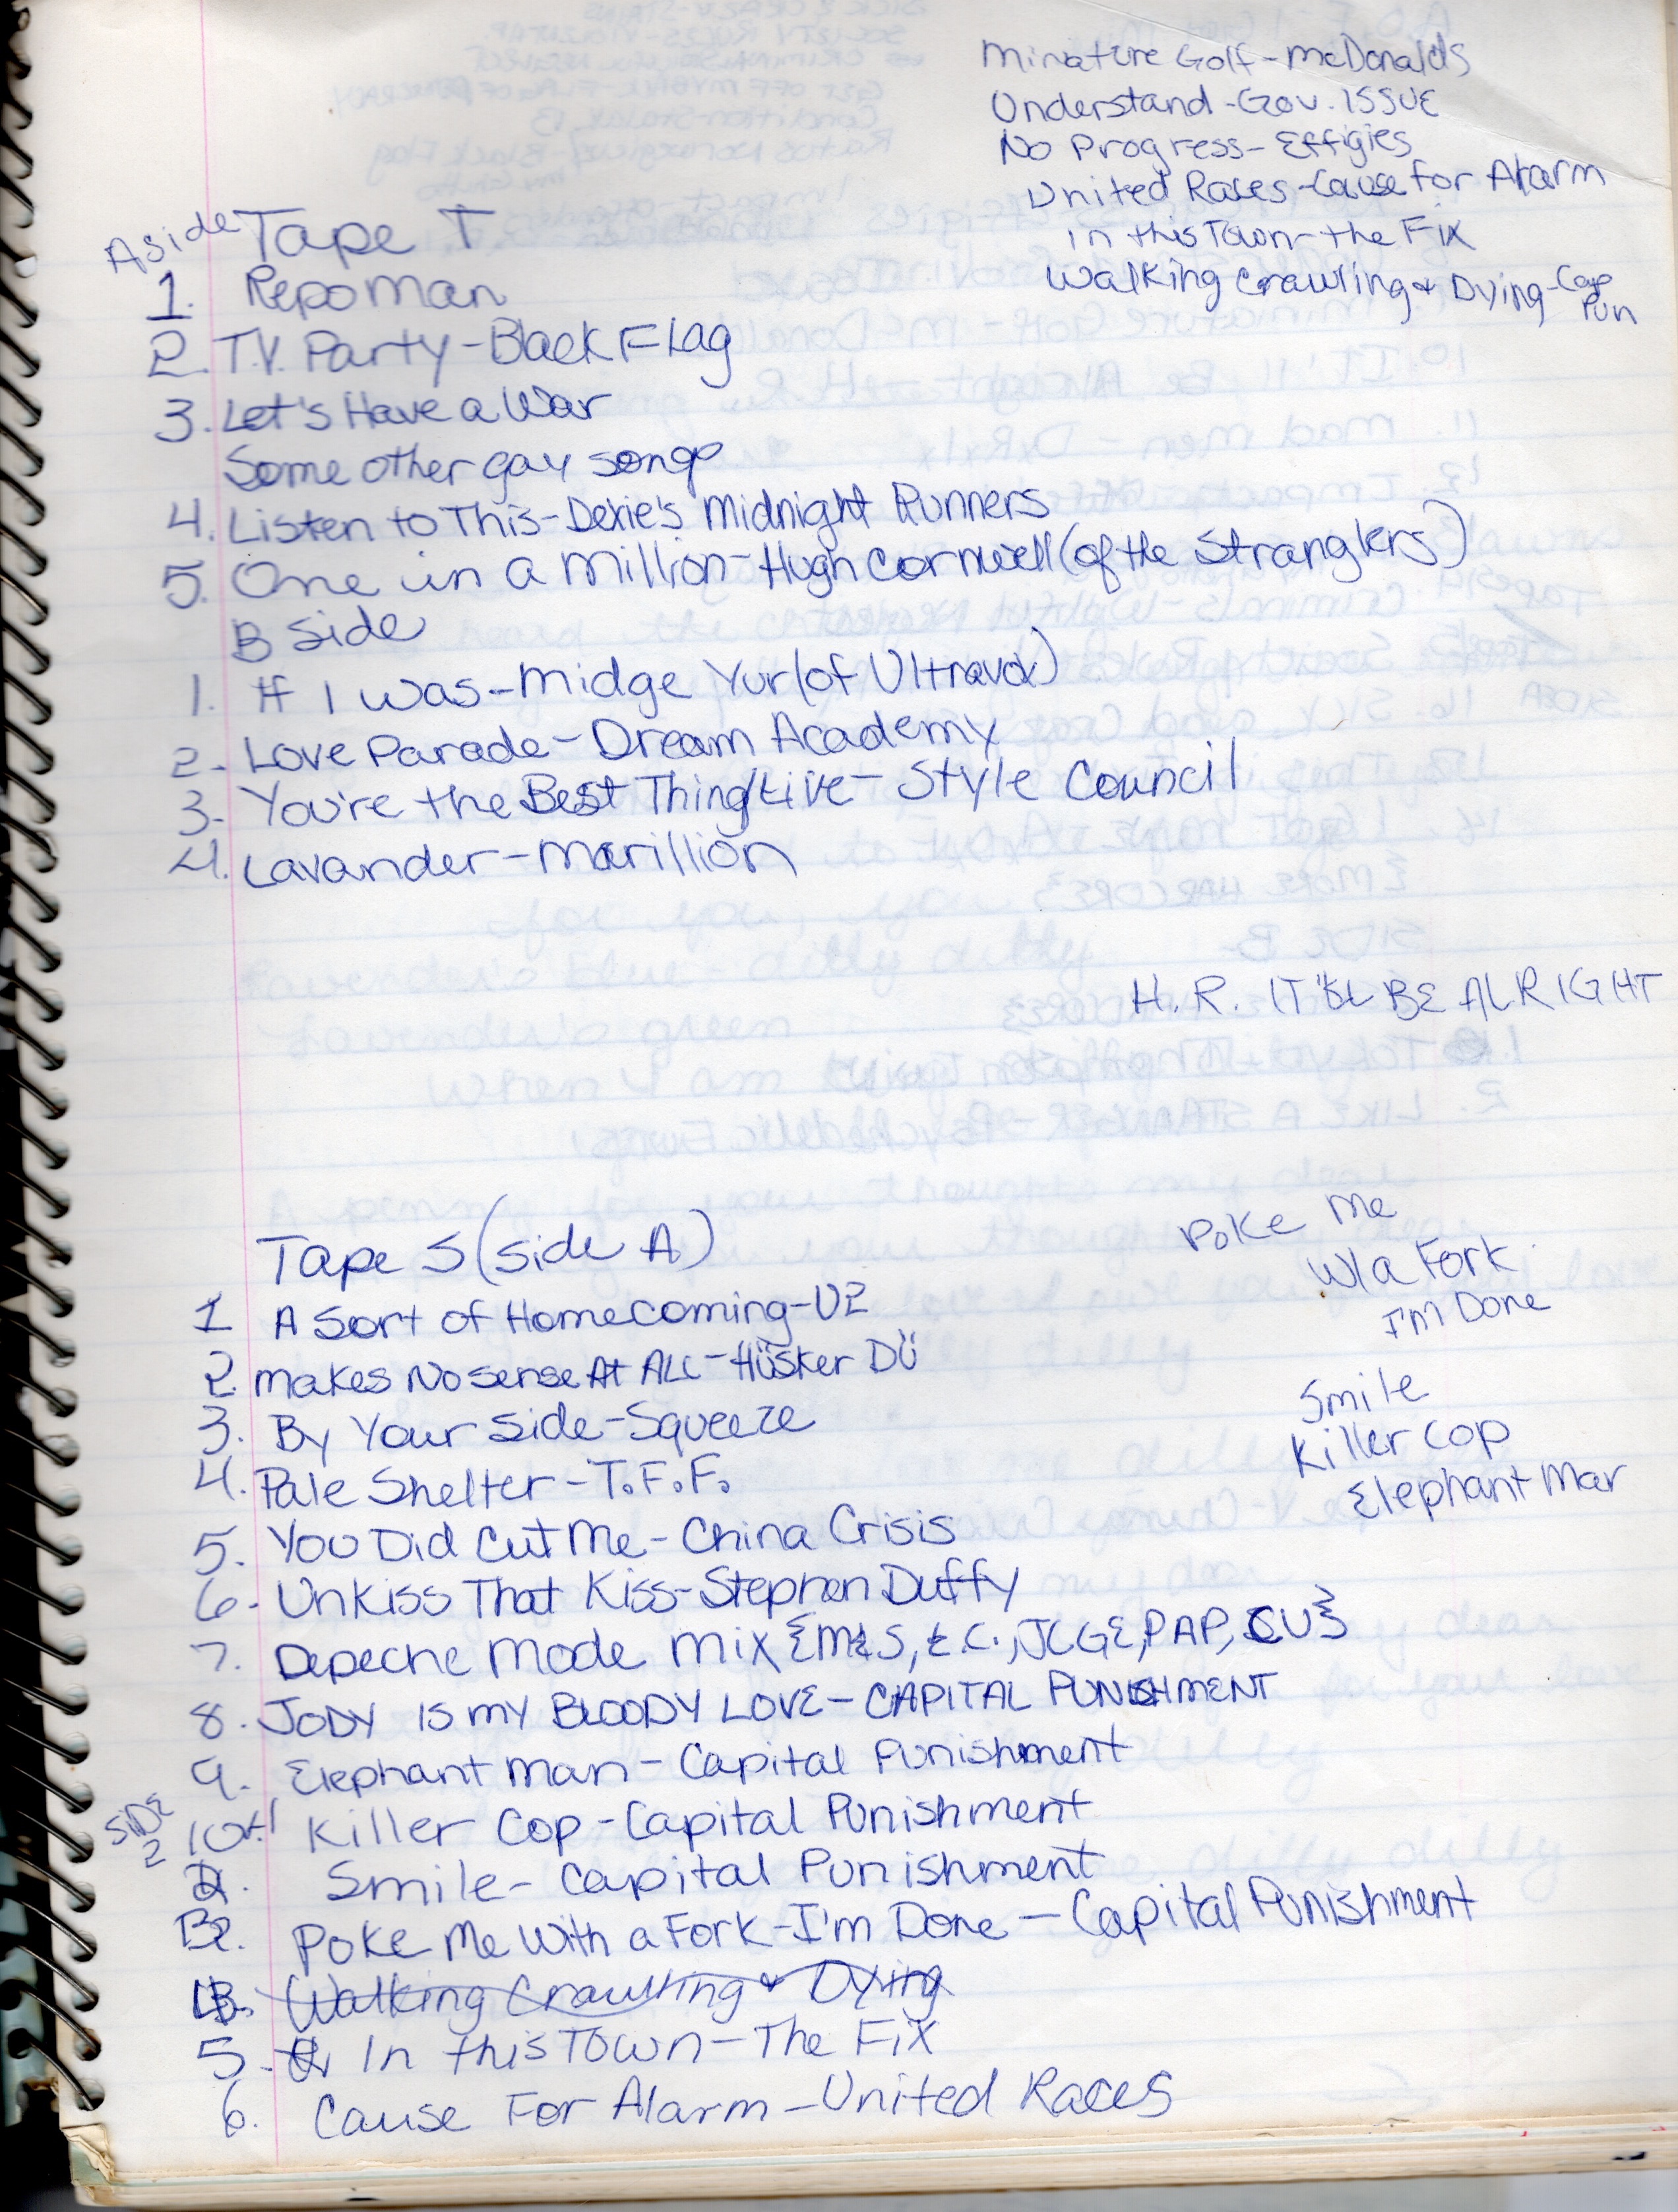 Minature Golf-McDonalds
Understand-Gov. ISSUE
No Progress-Effigies
United Races-Cause for Alarm
in this Town-the Fix
Walking Crawling & Dying-Cap
Pun
A side Tape T
1. Repo Man
2. T.V. Party-Black Flag
3. Let's Have a War
Some other gay songs
4. Listen to This-Dexie's Midnight Runners
5. One in a Million-Hugh Cornwell (of the Stranglers)
B side
1. If I was-Midge Yur (of Ultravox)
2. Love Parade-Dream Academy
3. You're the Best Thing/Live-Style Council
4. Lavander-Marillion
H.R. IT'LL BE ALRIGHT
Tape S (side A)
1 A Sort of Homecoming-U2
2. Makes No Sense At ALL-Hüsker DÜ
3. By Your Side-Squeeze
4. Pale Shelter-T.F.F.
5. You Did Cut Me-China Crisis
6. Unkiss That Kiss-Stephen Duffy
7. Depeche Mode Mix {M&S, E.C., JCGE, PAP, CU}
8. JODY IS MY BLOODY LOVE-CAPITAL PUNISHMENT
9. Elephant Man-Capital Punishment
SIDE 2
10 #1 Killer Cop-Capital Punishment
Smile-Capital Punishment
Poke Me With a Fork-I'm Done-Capital Punishment
Walking Crawling & Dying
5. In this Town-The Fix
6. Cause For Alarm-United Races
Poke Me
W/a Fork
I'm Done
Smile
Killer Cop
Elephant Mar